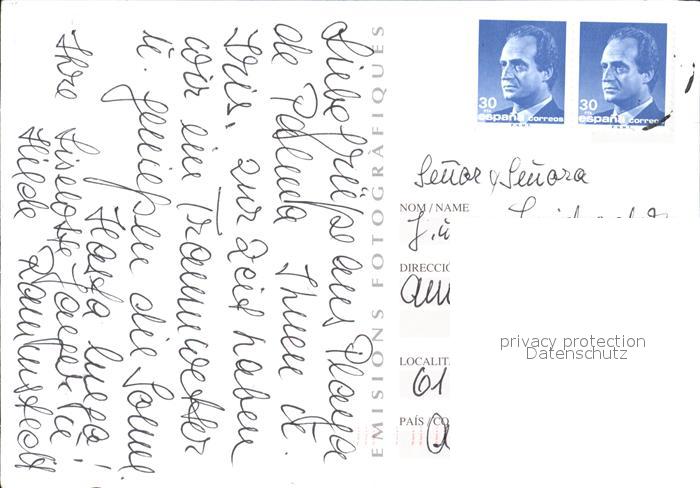 Liebe Grüße aus Playa
de Palma Ihnen u.
Iris. zur Zeit haben
wir ein Traumwetter
u. genießen die Sonne!
Hasta luego!
Ihre Liselotte
Hilde
EMISIONS FOTOGRÀFIQUES
30 PTA
españa correos
F.N.M.T.
30 PTA
españa correos
F.N.M.T.
Señor y Señora
NOM / NAME
J. u
DIRECCIÓ
am
LOCALIT
61
PAÍS / CO
privacy protection
Datenschutz